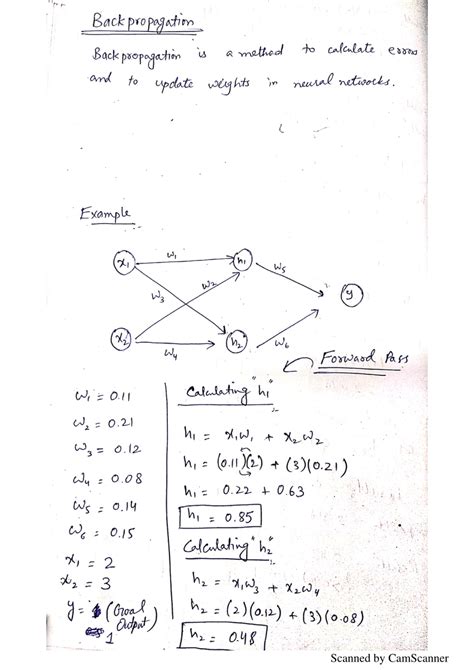 Backpropagation
Backpropagation is a method to calculate errors
and to update weights in neural networks.
Example
x₁
w₁
h₁
w₅
w₂
w₃
y
x₂
w₄
h₂
w₆
Forward Pass
w₁ = 0.11
w₂ = 0.21
w₃ = 0.12
w₄ = 0.08
w₅ = 0.14
w₆ = 0.15
x₁ = 2
x₂ = 3
y = (Goal
Output)
1
Calculating "h₁" :-
h₁ = x₁w₁ + x₂w₂
h₁ = (0.11)(2) + (3)(0.21)
h₁ = 0.22 + 0.63
h₁ = 0.85
Calculating "h₂" :-
h₂ = x₁w₃ + x₂w₄
h₂ = (2)(0.12) + (3)(0.08)
h₂ = 0.48
Scanned by CamScanner